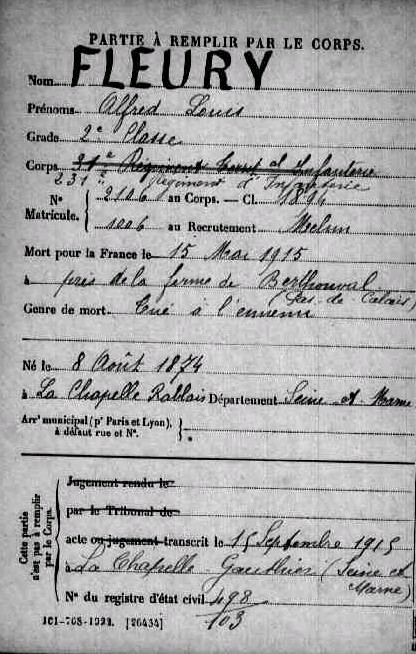 PARTIE À REMPLIR PAR LE CORPS.
Nom FLEURY
Prénoms Alfred Louis
Grade 2e Classe
Corps 31e Régiment Territ d'Infanterie
231e Régiment d'Infanterie
Matricule. { No 2106 au Corps. — Cl. 1894
1006 au Recrutement Melun
Mort pour la France le 15 Mai 1915
à près de la ferme de Berthonval
(Pas-de-Calais)
Genre de mort Tué à l'ennemi
Né le 8 Août 1874
à La Chapelle Rablais Département Seine et Marne
Arrt municipal (pr Paris et Lyon),
à défaut rue et No.
Cette partie n'est pas à remplir par le Corps.
Jugement rendu le
par le Tribunal de
acte ou jugement transcrit le 15 Septembre 1915
à La Chapelle Gauthier (Seine et
Marne)
No du registre d'état civil 498
103
101-708-1922. [26434]